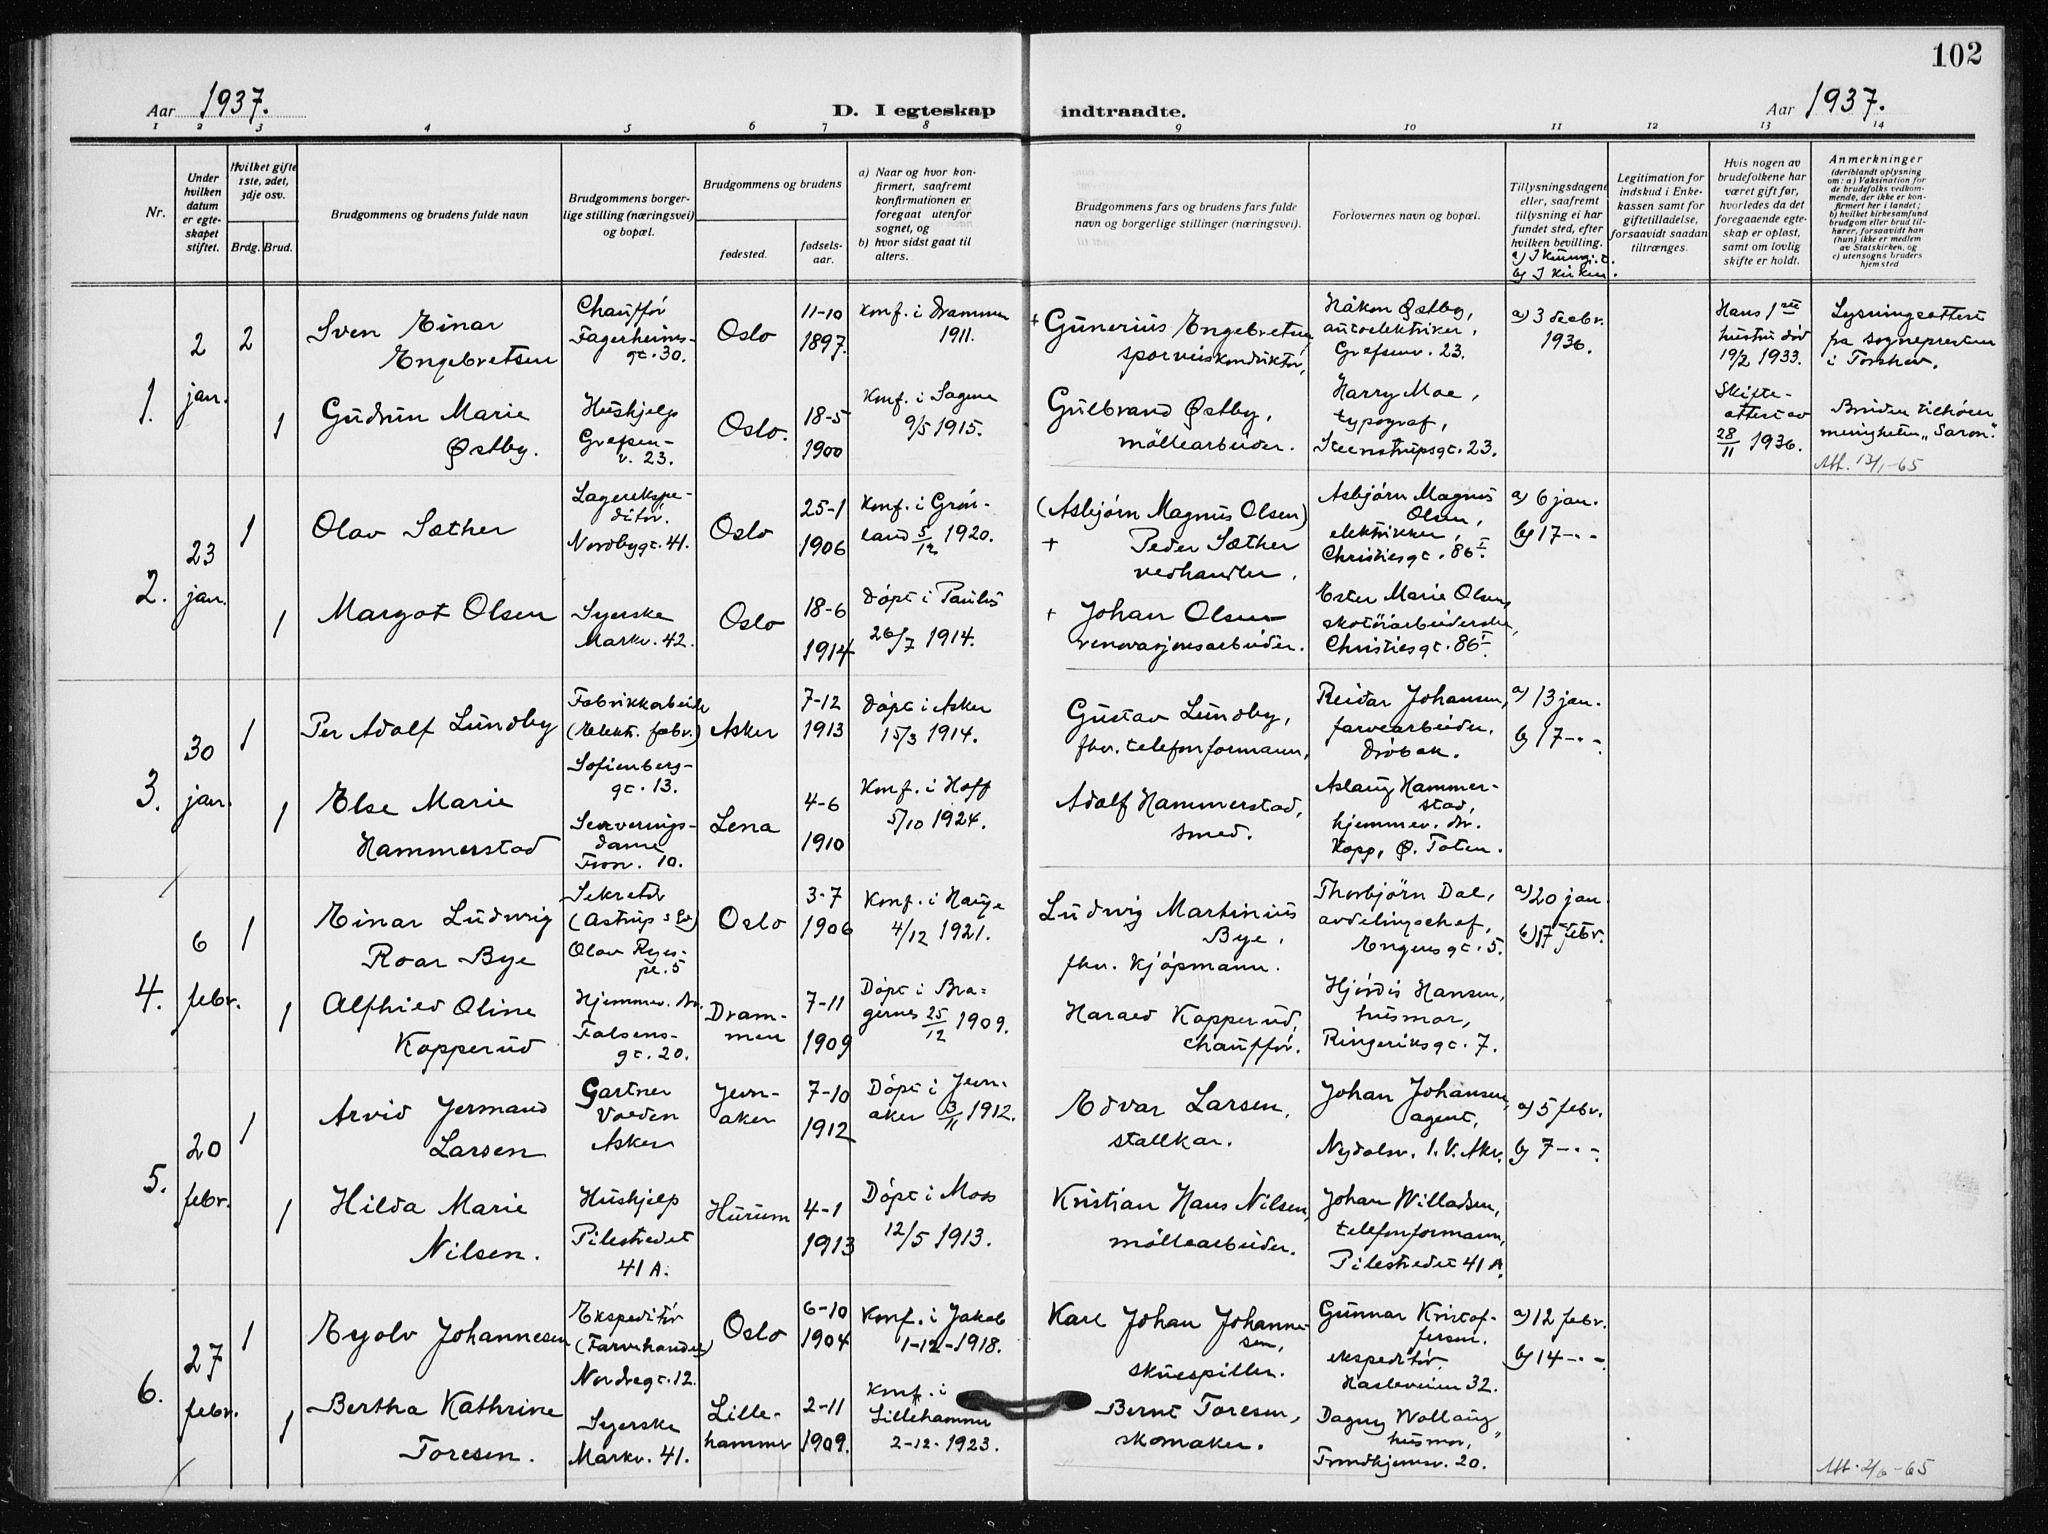 102
Aar 1937.
D. I egteskap indtraadte.
Aar 1937.
1 2 3 4 5 6 7 8 9 10 11 12 13 14
Nr.
Under
hvilken
datum
er egte-
skapet
stiftet.
Hvilket gifte
1ste, 2det,
3dje osv.
Brdg. Brud.
Brudgommens og brudens fulde navn
Brudgommens borger-
lige stilling (næringsvei)
og bopæl.
Brudgommens og brudens
fødested.
fødsels-
aar.
a) Naar og hvor kon-
firmert, saafremt
konfirmationen er
foregaat utenfor
sognet, og
b) hvor sidst gaat til
alters.
Brudgommens fars og brudens fars fulde
navn og borgerlige stillinger (næringsvei).
Forlovernes navn og bopæl.
Tillysningsdagene
eller, saafremt
tillysning ei har
fundet sted, efter
hvilken bevilling.
b) I kirken.
Legitimation for
indskud i Enke-
kassen samt for
giftetilladelse,
forsaavidt saadan
tiltrænges.
Hvis nogen av
brudefolkene har
været gift før,
hvorledes da det
foregaaende egte-
skap er opløst,
samt om lovlig
skifte er holdt.
Anmerkninger
(deriblandt oplysning
om: a) Vaksination for
de brudefolks vedkom-
mende, der ikke er kon-
firmert her i landet;
b) hvilket kirkesamfund
brudgom eller brud til-
hører, forsaavidt han
(hun) ikke er medlem
av Statskirken, og
c) utensogns bruders
hjemsted
1.
2
jan.
2
Sven Einar
Engebretsen
Chauffør
Fagerheims-
gt. 30.
Oslo
11-10
1897.
Konf. i Drammen
1911.
+ Gunerius Engebretsen,
sporveiskonduktør,
Håkon Østby,
autoelektriker,
Grefsenv. 23.
a) 3 decbr.
1936.
Hans 1ste
hustru død
19/2 1933.
Lysningsattest
fra sognepresten
i Torshov.
1
Gudrun Marie
Østby.
Hushjelp
Grefsen-
v. 23.
Oslo.
18-5
1900
Konf. i Sagene
9/5 1915.
Gulbrand Østby,
møllearbeider.
Harry Moe,
typograf,
Steenstrupsgt. 23.
Skifte-
attest av
28/11 1936.
Bruden tilhører
menigheten „Saron".
Att. 13/1-65
2.
23
jan.
1
Olav Sæther
Lagerekspe-
ditør.
Nordbygt. 41.
Oslo
25-1
1906
Konf. i Grøn-
land 5/12 1920.
(Asbjørn Magnus Olsen)
+ Peder Sæther
vedhandler.
Asbjørn Magnus
Olsen,
elektrikker,
Christiesgt. 86 I.
a) 6 jan.
b) 17 - " -
1
Margot Olsen
Syerske
Markv. 42.
Oslo
18-6
1914
Døpt i Paulus
26/7 1914.
+ Johan Olsen
renovasjonsarbeider.
Ester Marie Olsen,
skotøiarbeiderske,
Christiesgt. 86 I.
3.
30
jan.
1
Per Adolf Lundby
Fabrikkarbeider
(Elekt. fabr.)
Sofienberg-
gt. 13.
Asker
7-12
1913
Døpt i Asker
15/3 1914.
Gustav Lundby,
fhv. telefonformann,
Reidar Johansen,
farvearbeider,
Drøbak.
a) 13 jan.
b) 17 - " -
1
Else Marie
Hammerstad
Serverings-
dame
Fron. 10.
Lena
4-6
1910
Konf. i Hoff
5/10 1924.
Adolf Hammerstad,
smed.
Aslaug Hammer-
stad,
hjemmev. dtr.
Kapp, Ø. Toten.
4.
6
febr.
1
Einar Ludwig
Roar Bye
Sekretær
(Astrup & Søn)
Olav Ryes-
pl. 5
Oslo
3-7
1906
Konf. i Hauge
4/12 1921.
Ludwig Martinius
Bye,
fhv. kjøpmann.
Thorbjørn Dal,
avdelingschef,
Engensgt. 5.
a) 20 jan
b) 17 febr.
1
Alfhild Oline
Kopperud
Hjemmev. dtr.
Falsens-
gt. 20.
Dram-
men
7-11
1909
Døpt i Bra-
gernes 25/12 1909.
Harald Kopperud,
chauffør.
Hjørdis Hansen,
husmor,
Ringeriksgt. 7.
5.
20
febr.
1
Arvid Jermand
Larsen
Gartner
Volden
Asker
Jevn-
aker
7-10
1912
Døpt i Jevn-
aker 3/11 1912.
Edvar Larsen,
stallkar.
Johan Johansen,
agent,
Nydalsv. 1. V. Akr.
a) 5 febr.
b) 7 - " -
1
Hilda Marie
Nilsen.
Hushjelp
Pilestredet
41 A.
Hurum
4-1
1913
Døpt i Moss
12/5 1913.
Kristian Hans Nilsen,
møllearbeider.
Johan Willadsen,
telefonformann,
Pilestredet 41 A.
6.
27
febr.
1
Eyolv Johannesen
Ekspeditør
(Farvehandel)
Nordregt. 12.
Oslo
6-10
1904
Konf. i Jakob
1-12-1918.
Karl Johan Johanne-
sen,
skuespiller.
Gunnar Kristof-
fersen.
ekspeditør.
Hasleveien 32.
a) 12 febr.
b) 14 - " -
1
Bertha Kathrine
Toresen.
Syerske
Markv. 41.
Lille-
hammer
2-11
1909.
Konf. i
Lillehammer
2-12-1923.
Bernt Toresen,
skomaker.
Dagny Wollaug,
husmor,
Trondhjemsv. 20.
Att. 2/6-65